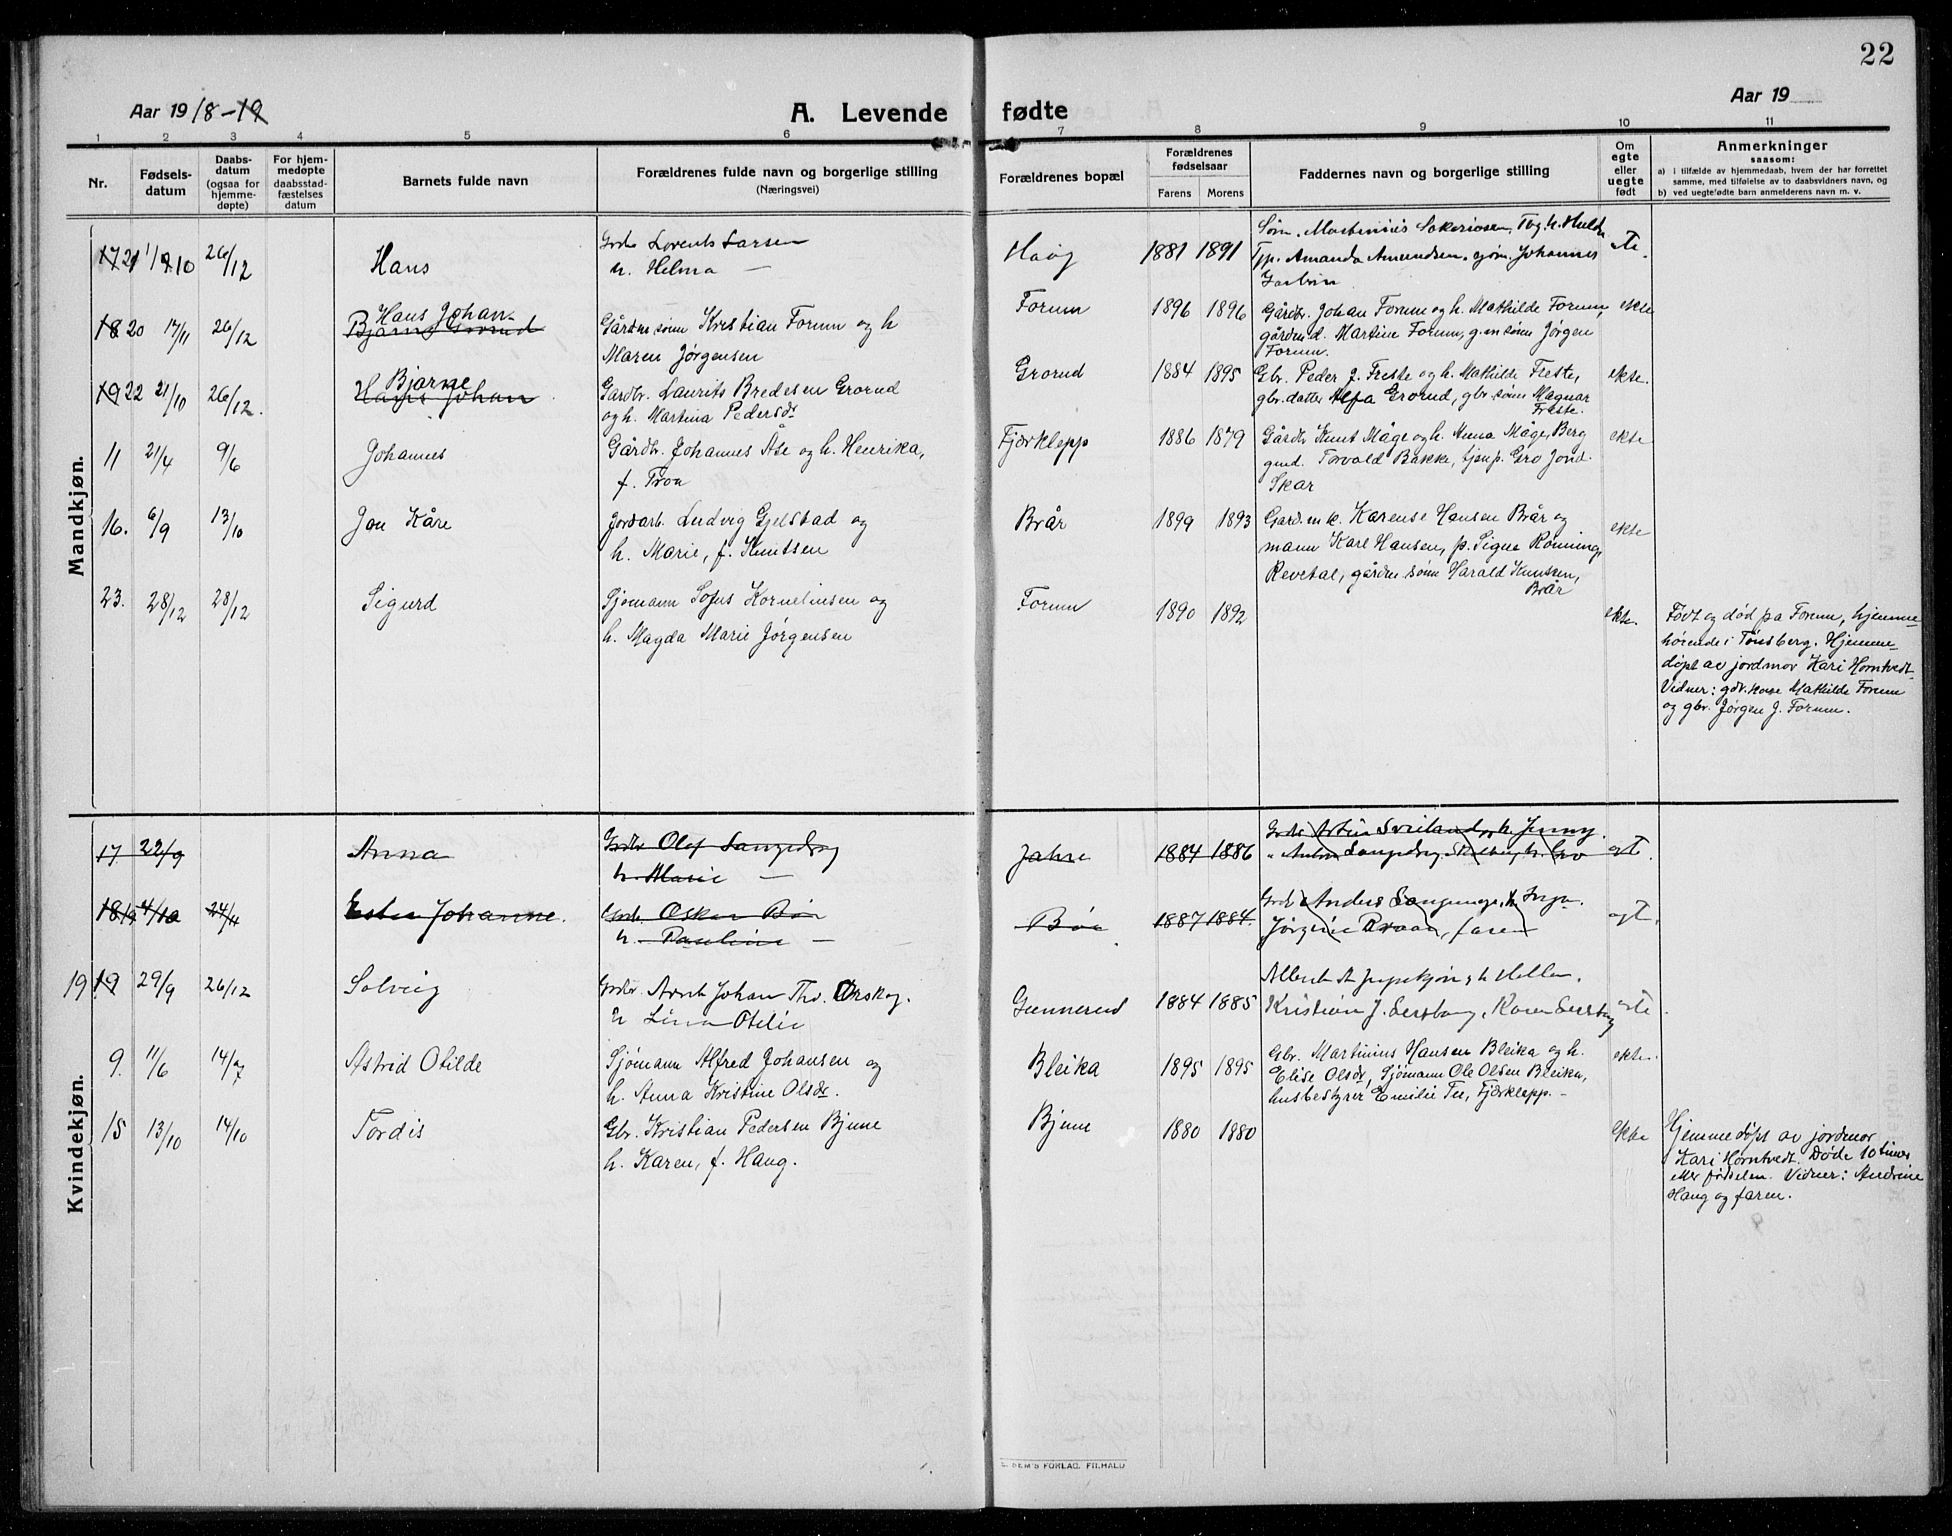 22
Aar 1918-19
A. Levende fødte
Aar 19
1 2 3 4 5 6 7 8 9 10 11
Nr.
Fødsels-
datum
Daabs-
datum
(ogsaa for
hjemme-
døpte)
For hjem-
medøpte
daabsstad-
fæstelses
datum
Barnets fulde navn
Forældrenes fulde navn og borgerlige stilling
(Næringsvei)
Forældrenes bopæl
Forældrenes
fødselsaar
Farens Morens
Faddernes navn og borgerlige stilling
Om
egte
eller
uegte
født
Anmerkninger
saasom:
a) i tilfælde av hjemmedaab, hvem der har forrettet
samme, med tilføielse av to daabsvidners navn, og
b) ved uegtefødte barn anmelderens navn m. v.
Mandkjøn.
17 21 1/10 26/12 Hans
Lorents Larsen
h. Helma —
Haug 1881 1891
Amanda Amundsen, Johannes
18 20 17/11 26/12 Hans Johan
Bjarne Grorud
Gårdm.sønn Kristian Forum og h
Maren Jørgensen
Forum 1896 1896
Gårdbr. Johan Forum og h. Mathilde Forum,
gårdm.d. Martine Forum, g.m.sønn Jørgen
Forum.
ekte
19 22 21/10 26/12. Bjarne
Hans Johan
Gardbr. Laurits Bredesen Grorud
og h. Martina Pedersdr
Grorud 1884 1895
Gbr. Peder J. Freste og h. Mathilde Freste,
gbr. datter Alfa Grorud, gbr. sønn Magnar
Freste.
ekte.
11 21/4 9/6 Johannes
Gårdbr. Johannes Åse og h. Henrika,
f. Tron
Fjærklepp 1886 1879
Gårdbr Knut Måge og h. Anna Måge, Berg
gmd. Torvald Bakke, tjenp. Gro Jond.
Skar
ekte
16. 6/9 13/10 Jon Kåre
Jordarb. Ludvig Gjelstad og
h. Marie, f. Knutsen
Brår 1899 1893
Gardm.k. Karense Hansen Brår og
mann Karl Hansen, p. Signe Rønning,
Revetal, gårdm. sønn Harald Knutsen,
Brår
ekte
23. 28/12 28/12 Sigurd
Sjømann Sofus Kornelinsen og
h. Magda Marie Jørgensen
Forum 1890 1892
ekte.
Født og død på Forum, hjemme-
hørende i Tønsberg. Hjemme-
døpt av jordmor Kari Horntvedt
Vidner: gdr. kone Mathilde Forum
og gbr. Jørgen J. Forum.
Kvindekjøn.
17 22/9 Anna
Olof Langedrag
h. Marie —
Jahre 1884 1886
h. Jenny.
18 4/10 24/11 Ester Johanne.
Oskar Bøe
h. Pauline —
Bøe 1887 1884.
19 19 29/9 26/12 Solveig
Arnt Johan Thv. Orskog.
h Lina Otelie
Gunnerud 1884 1885
Kristian J.
9. 11/6 14/7 Astrid Otilde
Sjømann Alfred Johansen og
h. Anna Kristine Olsdr.
Bleika 1895 1895
Gbr. Martinius Hansen Bleika og h.
Elise Olsdr, Sjømann Ole Olsen Bleika,
husbestyrer Emilie Tee, Fjærklepp.
ekte.
15 13/10 14/10 Tordis
Gbr. Kristian Pedersen Bjune
h. Karen, f. Haug.
Bjune 1880 1880
ekte
Hjemmedøpt av jordmor
Kari Horntvedt. Døde 10 timer
etter fødselen. Vidner: Andrine
Haug og faren.
SEM'S FORLAG, FR.HALD